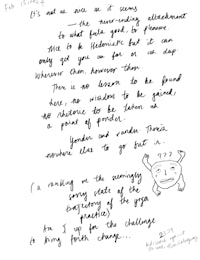 It's not as sure as it seems
— the never-ending attachment
to what feels good, to pleasure
Nice to be Hedonistic but it can
only get you so far or so deep
wherever then, however then
There is no lesson to be found
here, no wisdom to be gained,
no rhetoric to be taken as
a point of ponder.
Yonder and yonder
nowhere else to go but in.
(a ranking on the seemingly
sorry state of the
trajectory of the yoga
practice)
Am I up for the challenge
to bring forth change...
???